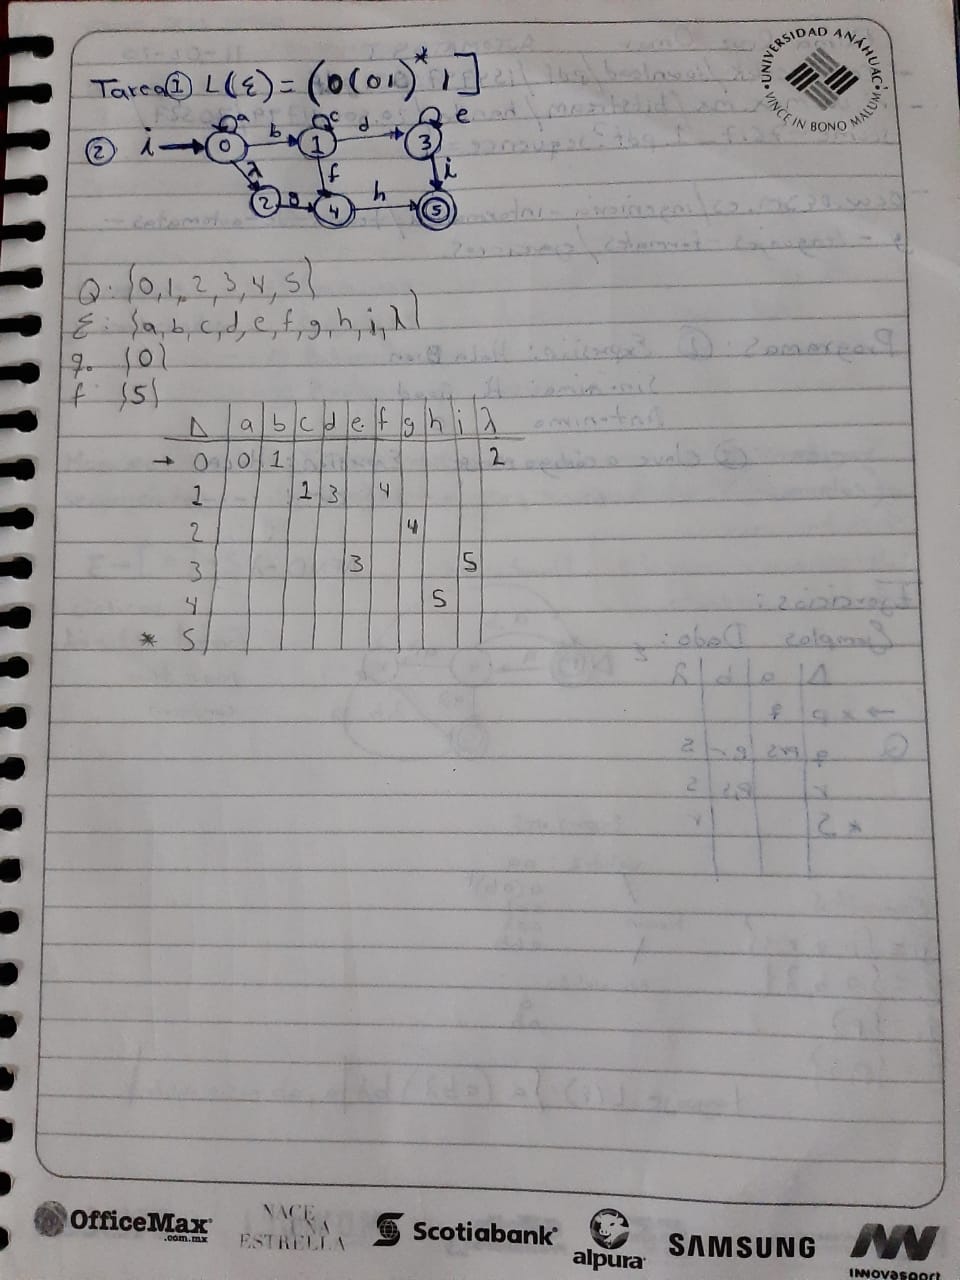 UNIVERSIDAD ANÁHUAC
VINCE IN BONO MALUM
Tarea ① L(Σ) = (0(01)* 1]
② i → 0 a b 1 c d 3 e
λ f i
2 g 4 h 5
Q: {0,1,2,3,4,5}
Σ: {a,b,c,d,e,f,g,h,i,λ}
q. {0}
f {5}
Δ a b c d e f g h i λ
→ 0 0 1 2
1 1 3 4
2 4
3 3 5
4 5
* 5
OfficeMax
.com.mx
NACE
UNA
ESTRELLA
Scotiabank
alpura
SAMSUNG
INNOVASPORT